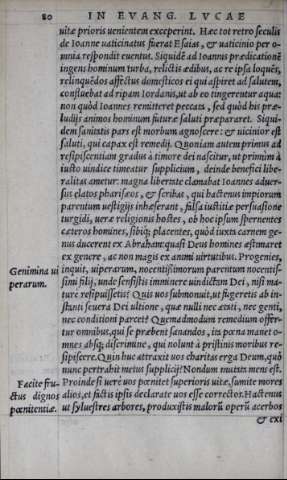 80 IN EVANG. LVCAE
uitæ prioris uenientem exceperint. Hæc tot retro seculis
de Ioanne uaticinatus fuerat Esaias, & uaticinio per o-
mnia respondit euentus. Siquidē ad Ioannis prædicationē
ingens hominum turba, relictis ædibus, ac re ipsa loquēs,
relinquēdos affectus domesticos ei qui aspiret ad salutem,
confluebat ad ripam Iordanis, ut ab eo tingerentur aqua:
non quòd Ioannes remitteret peccata, sed quòd his præ-
ludijs animos hominum futuræ saluti præpararet. Siqui-
dem sanitatis pars est morbum agnoscere: & uicinior est
saluti, qui capax est remedij. Quoniam autem primus ad
resipiscentiam gradus à timore dei nascitur, ut primùm à
iusto uindice timeatur supplicium, deinde benefici libe-
ralitas ametur: magna libertate clamabat Ioannes aduer-
sus elatos pharisæos, & scribas, qui hactenus impiorum
parentum uestigijs inhæserant, falsa iustitiæ persuasione
turgidi, ueræ religionis hostes, ob hoc ipsum spernentes
cæteros homines, sibiq; placentes, quòd iuxta carnem ge-
nus ducerent ex Abraham: quasi Deus homines æstimaret
ex genere, ac non magis ex animi uirtutibus. Progenies,
Genimina ui
perarum.
inquit, uiperarum, nocentissimorum parentum nocentis-
simi filij, unde sensistis imminere uindictam Dei, nisi ma-
ture resipuissetis? Quis uos submonuit, ut fugeretis ab in-
stanti seuera Dei ultione, quæ nulli nec ætati, nec genti,
nec conditioni parcet? Quemadmodum remedium offer-
tur omnibus, qui se præbent sanandos, ita pœna manet o-
mnes absq; discrimine, qui nolunt à pristinis moribus re-
sipiscere. Quin huc attraxit uos charitas erga Deum, quò
nunc pertrahit metus supplicij? Nondum mutata mens est.
Facite fru-
ctus dignos
pœnitentiæ.
Proinde si uerè uos pœnitet superioris uitæ, sumite mores
alios, et factis ipsis declarate uos esse correctos. Hactenus
ut syluestres arbores, produxistis malorū operū acerbos
& exi